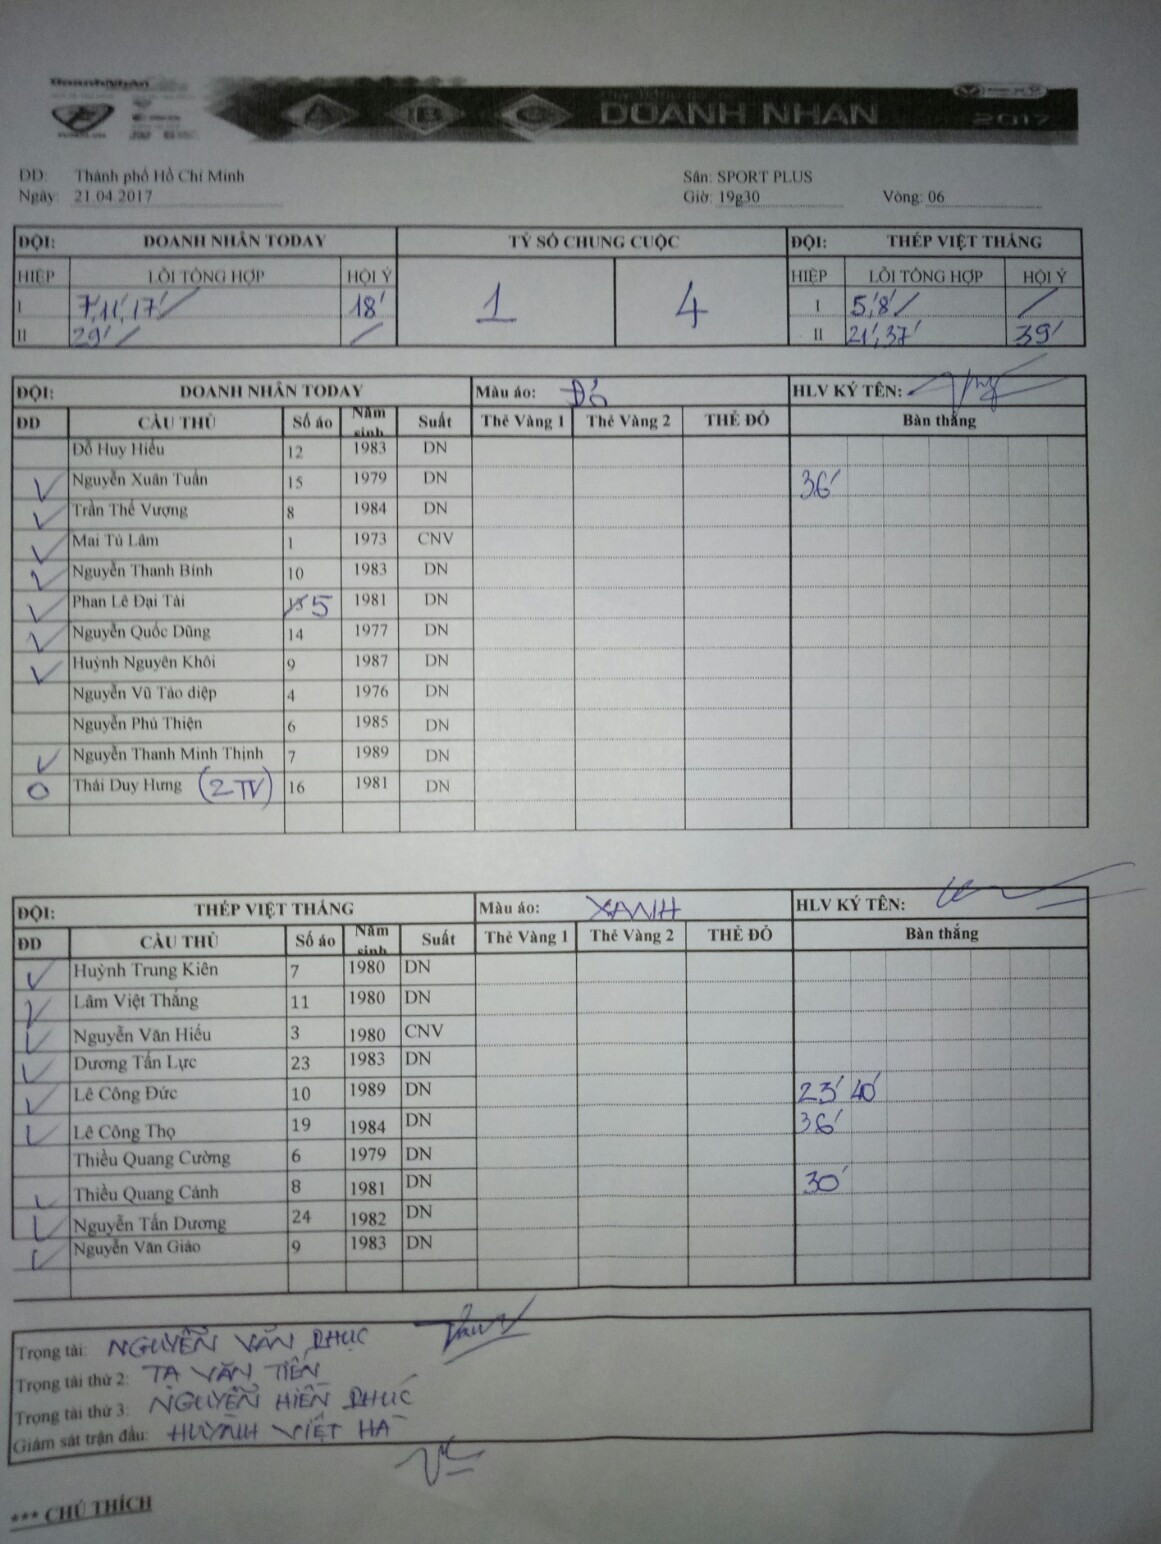 DoanhNhân
A B C DOANH NHAN
2017
ĐD: Thành phố Hồ Chí Minh Sân: SPORT PLUS
Ngày: 21.04.2017 Giờ: 19g30 Vòng: 06
ĐỘI: DOANH NHÂN TODAY TỶ SỐ CHUNG CUỘC ĐỘI: THÉP VIỆT THẮNG
HIỆP LỖI TỔNG HỢP HỘI Ý 1 4 HIỆP LỖI TỔNG HỢP HỘI Ý
I 7', 11', 17' / 18' I 5', 8' / /
II 29' / / II 21', 37' 39'
ĐỘI: DOANH NHÂN TODAY Màu áo: Đỏ HLV KÝ TÊN:
ĐD CẦU THỦ Số áo Năm sinh Suất Thẻ Vàng 1 Thẻ Vàng 2 THẺ ĐỎ Bàn thắng
Đỗ Huy Hiếu 12 1983 DN
Nguyễn Xuân Tuấn 15 1979 DN 36'
Trần Thế Vượng 8 1984 DN
Mai Tú Lâm 1 1973 CNV
Nguyễn Thanh Bình 10 1983 DN
Phan Lê Đại Tài 5 1981 DN
Nguyễn Quốc Dũng 14 1977 DN
Huỳnh Nguyên Khôi 9 1987 DN
Nguyễn Vũ Tảo diệp 4 1976 DN
Nguyễn Phú Thiện 6 1985 DN
Nguyễn Thanh Minh Thịnh 7 1989 DN
O Thái Duy Hưng (2 TV) 16 1981 DN
ĐỘI: THÉP VIỆT THẮNG Màu áo: XANH HLV KÝ TÊN:
ĐD CẦU THỦ Số áo Năm sinh Suất Thẻ Vàng 1 Thẻ Vàng 2 THẺ ĐỎ Bàn thắng
Huỳnh Trung Kiên 7 1980 DN
Lâm Việt Thắng 11 1980 DN
Nguyễn Văn Hiếu 3 1980 CNV
Dương Tấn Lực 23 1983 DN
Lê Công Đức 10 1989 DN 23' 40'
Lê Công Thọ 19 1984 DN 36'
Thiều Quang Cường 6 1979 DN
Thiều Quang Cảnh 8 1981 DN 30'
Nguyễn Tấn Dương 24 1982 DN
Nguyễn Văn Giáo 9 1983 DN
Trọng tài: NGUYỄN VĂN PHỤC
Trọng tài thứ 2: TẠ VĂN TIẾN
Trọng tài thứ 3: NGUYỄN HIỀN PHÚC
Giám sát trận đấu: HUỲNH VIỆT HÀ
*** CHÚ THÍCH